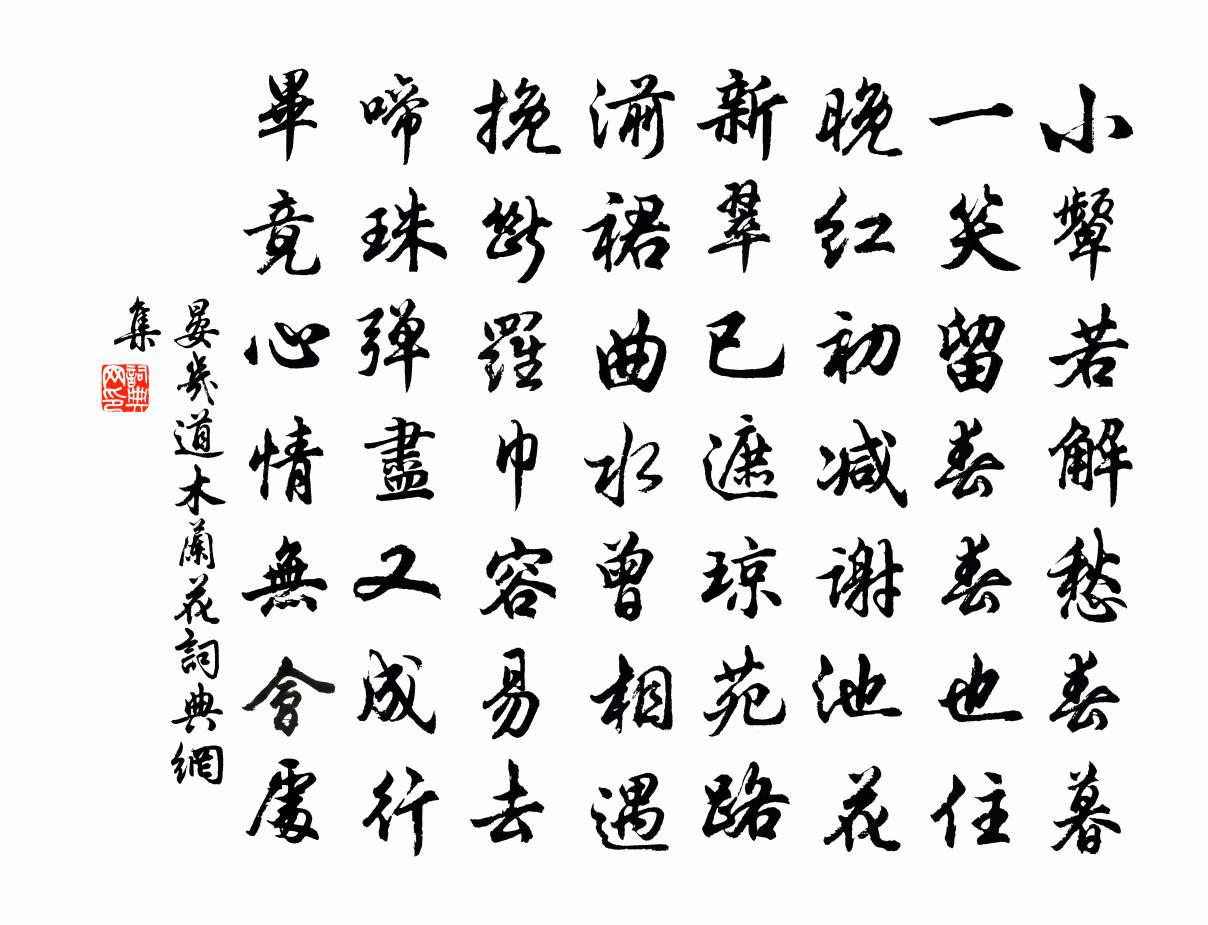 小顰若解愁春暮
一笑留春春也住
晚红初减謝池花
新翠已遮琼苑路
湔裙曲水曾相遇
挽斷羅巾容易去
啼珠弾盡又成行
畢竟心情無會處
晏幾道木蘭花詞典網
集
詞典网印